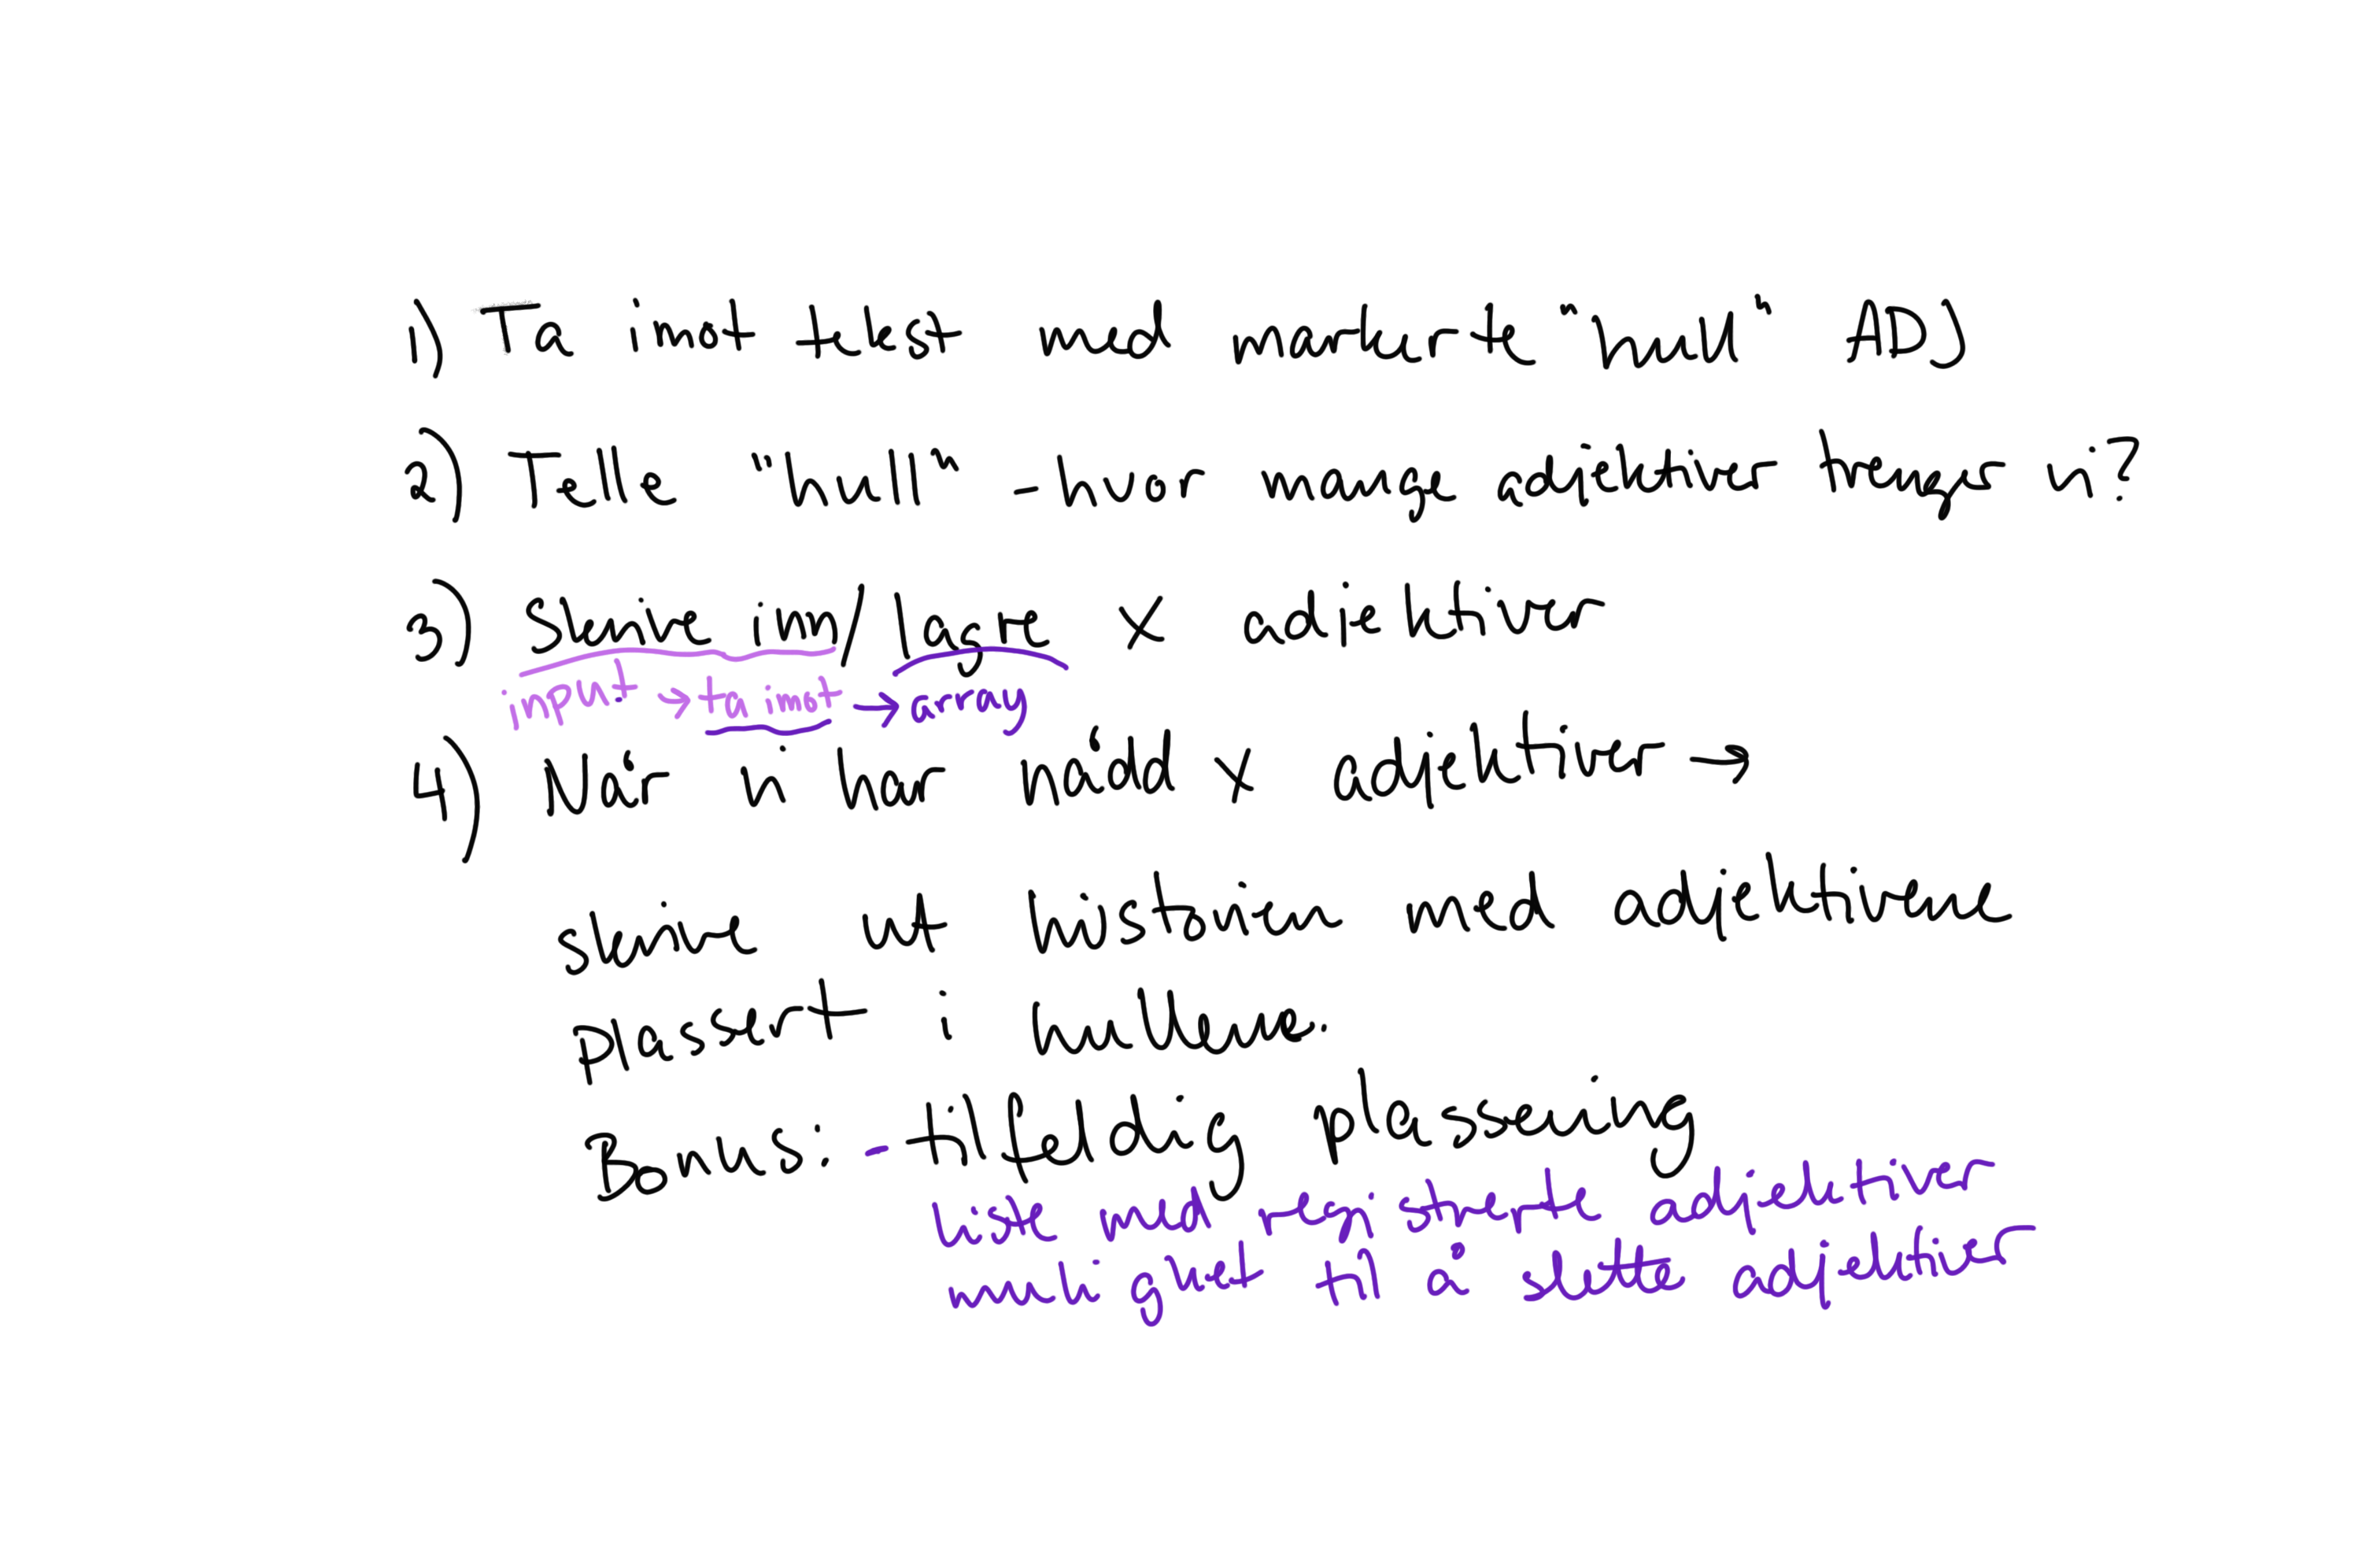 1) Ta imot tekst med markerte "hull" ADJ
2) Telle "hull" - hvor mange adjektiver trenger vi?
3) Skrive inn/lagre x adjektiver
input → ta imot → array
4) Når vi har nådd x adjektiver →
skrive ut historien med adjektivene
plassert i hullene.
Bonus: - tilfeldig plassering
liste med registrerte adjektiver
mulighet til å slette adjektiver